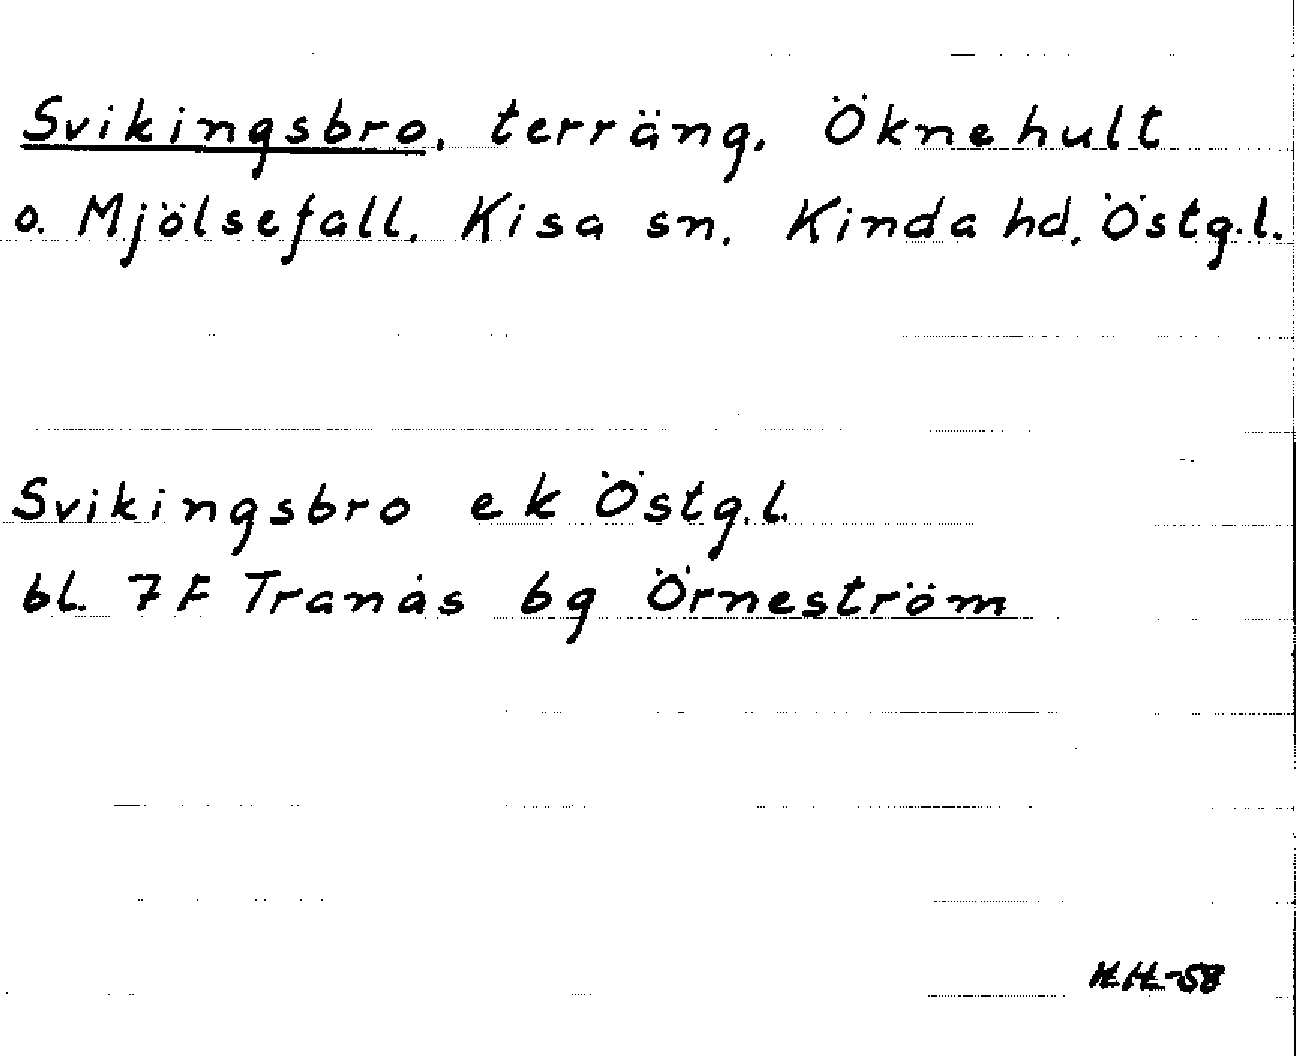 Svikingsbro, terräng, Öknehult
o. Mjölsefall, Kisa sn, Kinda hd, Östg.l.
Svikingsbro ek Östg.l.
bl. 7F Tranås bg Örneström